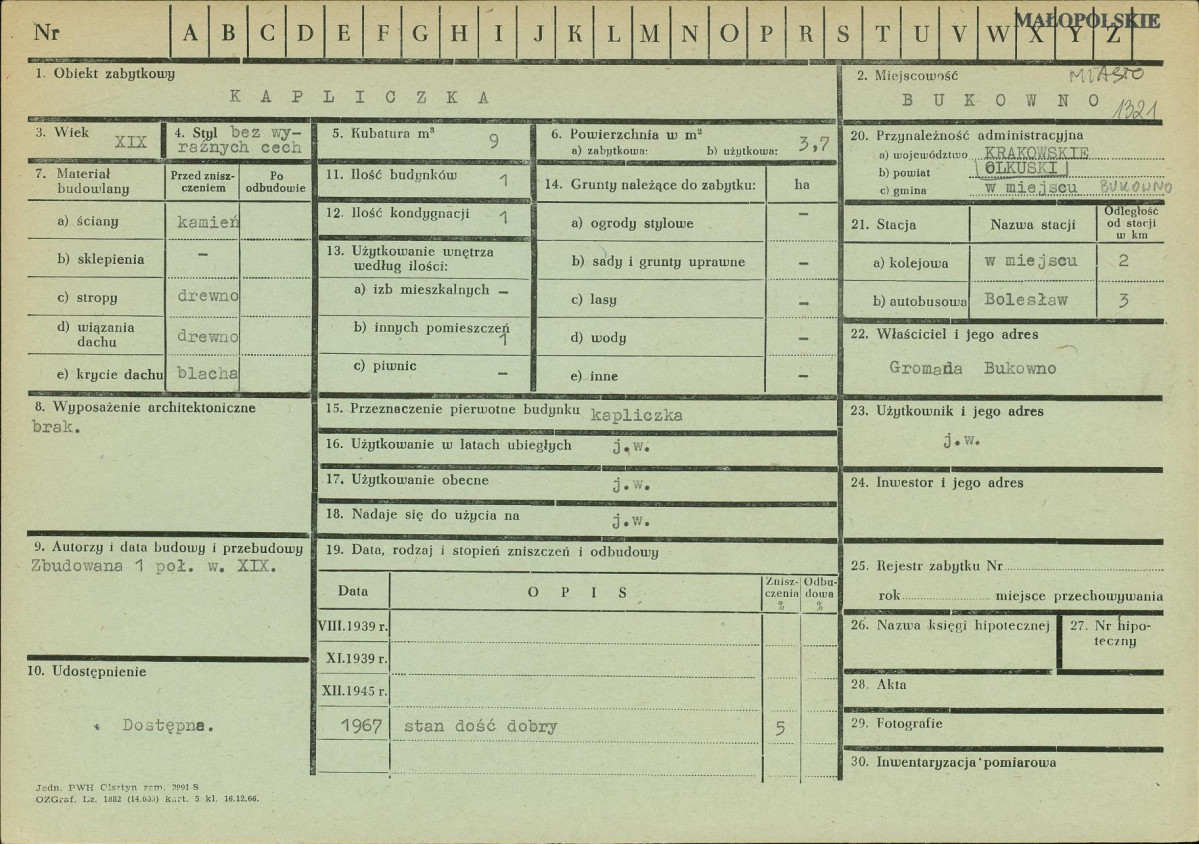 MAŁOPOLSKIE
Nr A B C D E F G H I J K L M N O P R S T U V W X Y Z
1. Obiekt zabytkowy
KAPLICZKA
2. Miejscowość MIASTO
BUKOWNO 1321
3. Wiek XIX
4. Styl bez wy-
raźnych cech
5. Kubatura m³ 9
6. Powierzchnia w m²
a) zabytkowa: b) użytkowa: 3,7
7. Materiał
budowlany
Przed znisz-
czeniem
Po
odbudowie
a) ściany kamień
b) sklepienia –
c) stropy drewno
d) wiązania
dachu drewno
e) krycie dachu blacha
8. Wyposażenie architektoniczne
brak.
9. Autorzy i data budowy i przebudowy
Zbudowana 1 poł. w. XIX.
10. Udostępnienie
Dostępna.
11. Ilość budynków 1
12. Ilość kondygnacji 1
13. Użytkowanie wnętrza
według ilości:
a) izb mieszkalnych –
b) innych pomieszczeń
1
c) piwnic –
14. Grunty należące do zabytku: ha
a) ogrody stylowe –
b) sady i grunty uprawne –
c) lasy –
d) wody –
e) inne –
15. Przeznaczenie pierwotne budynku kapliczka
16. Użytkowanie w latach ubiegłych j.w.
17. Użytkowanie obecne j.w.
18. Nadaje się do użycia na j.w.
19. Data, rodzaj i stopień zniszczeń i odbudowy
Data OPIS
Znisz-
czenia
%
Odbu-
dowa
%
VIII.1939 r.
XI.1939 r.
XII.1945 r.
1967 stan dość dobry 5
20. Przynależność administracyjna
a) województwo KRAKOWSKIE
b) powiat OLKUSKI
c) gmina w miejscu BUKOWNO
21. Stacja Nazwa stacji
Odległość
od stacji
w km
a) kolejowa w miejscu 2
b) autobusowa Bolesław 3
22. Właściciel i jego adres
Gromada Bukowno
23. Użytkownik i jego adres
j.w.
24. Inwestor i jego adres
25. Rejestr zabytku Nr
rok miejsce przechowywania
26. Nazwa księgi hipotecznej
27. Nr hipo-
teczny
28. Akta
29. Fotografie
30. Inwentaryzacja pomiarowa
Jedn. PWH Olsztyn zam. 2991 S
OZGraf. Lz. 1882 (14.000) kart. 5 kl. 16.12.66.